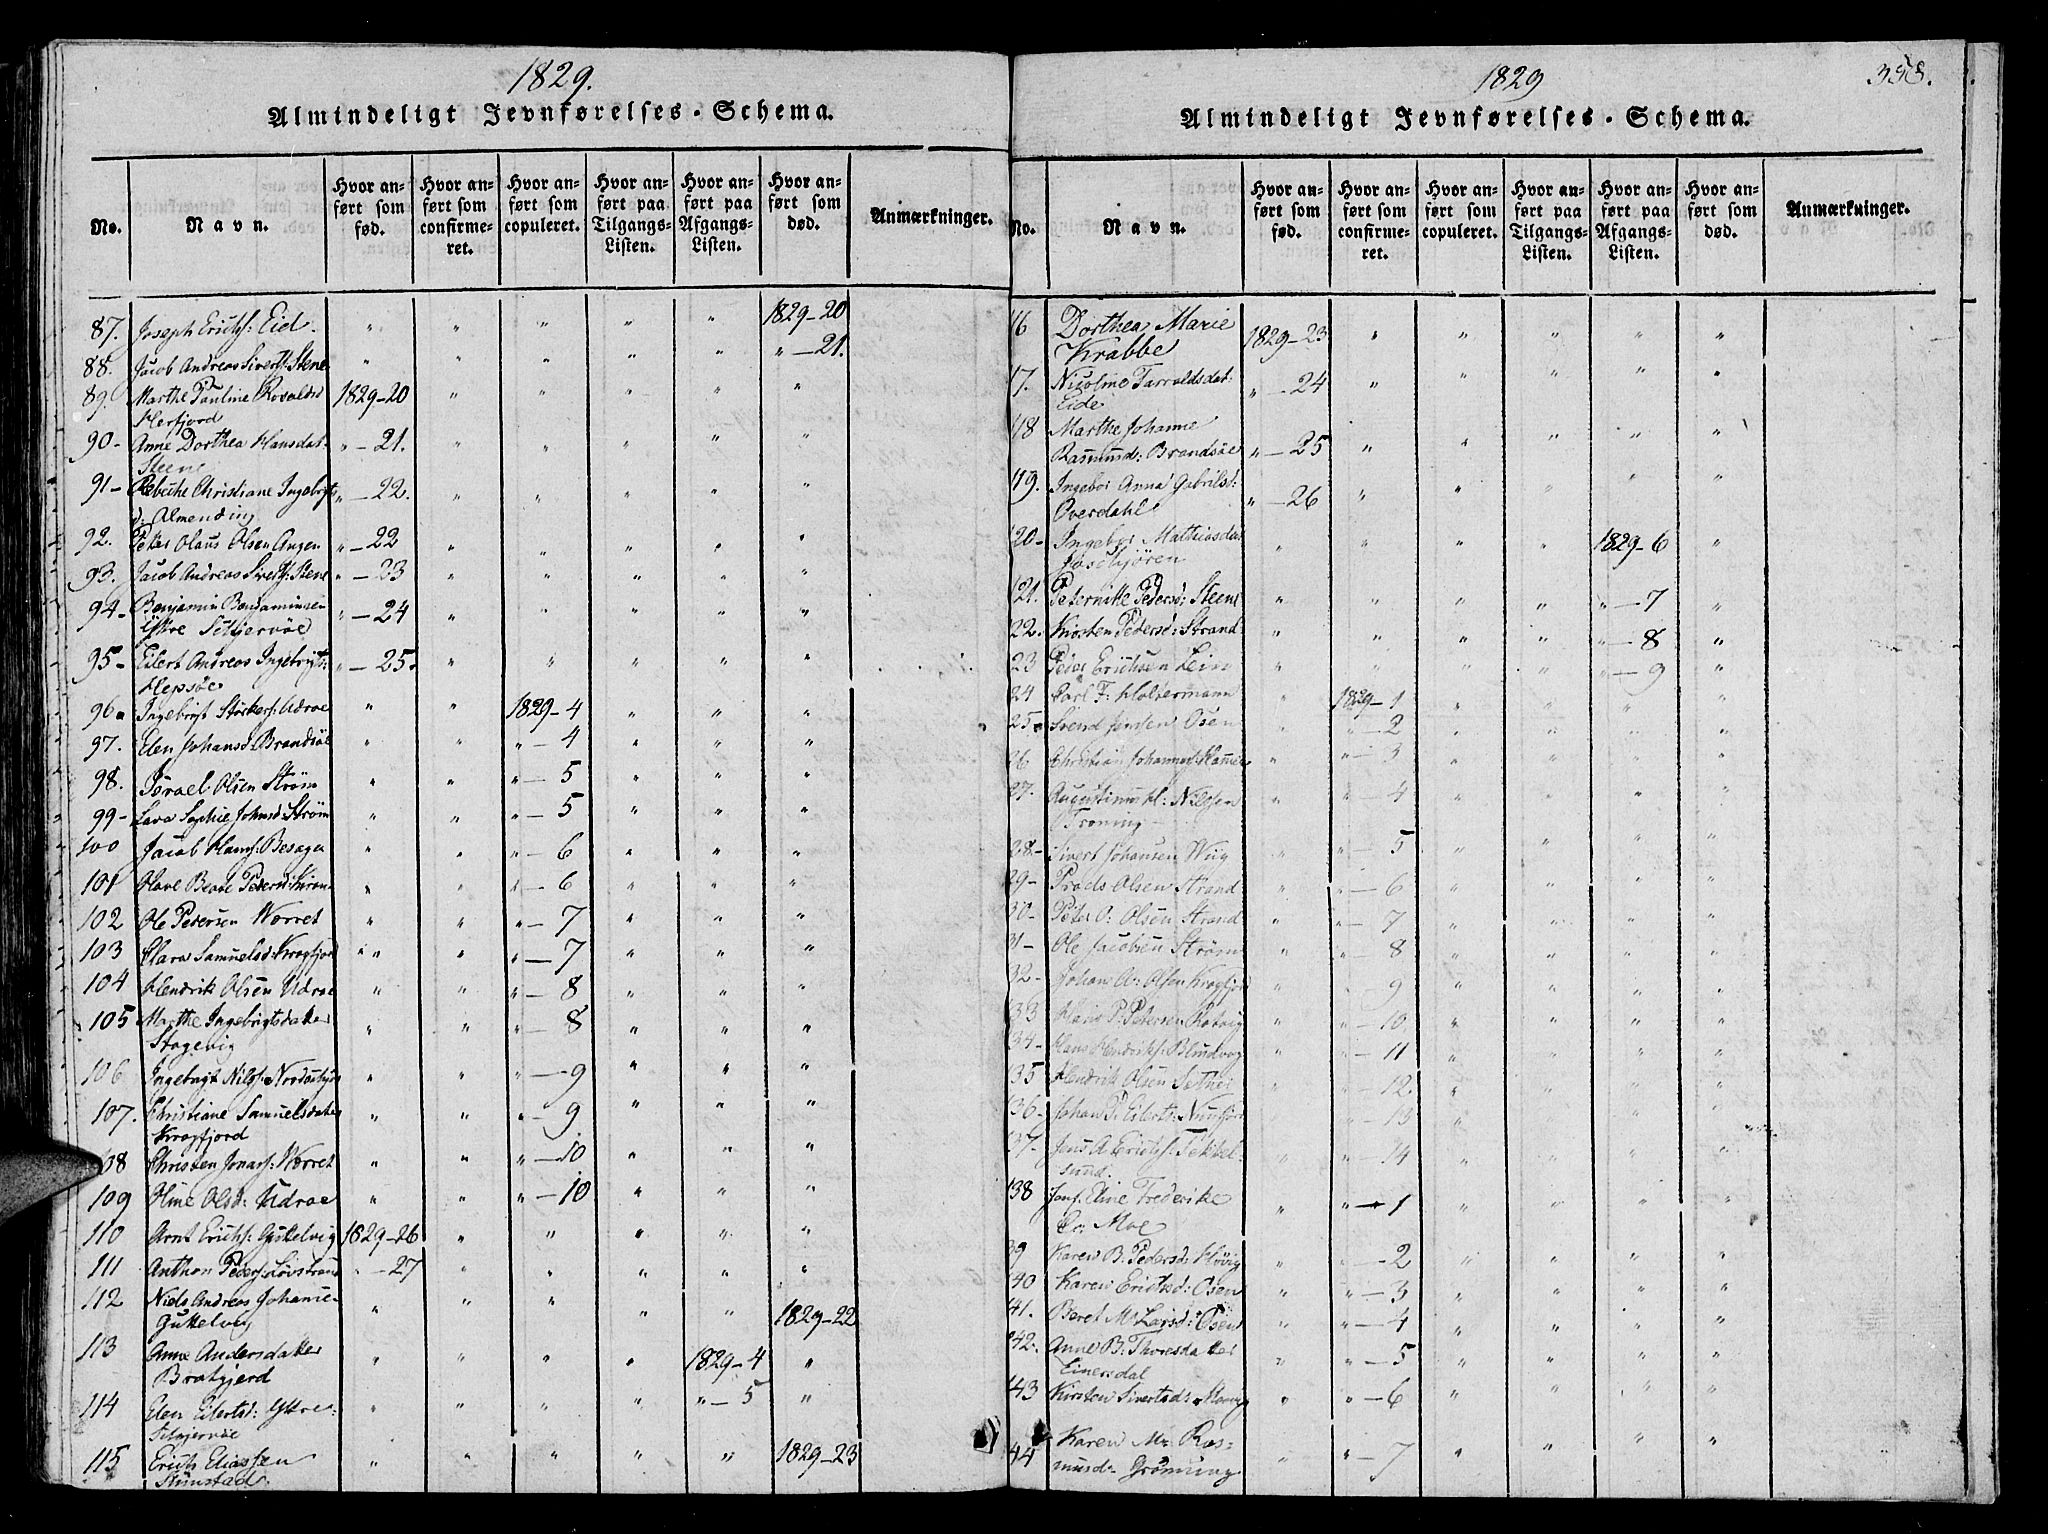 1829.
Almindeligt Jevnførelses-Schema.
No.
Navn.
Hvor anført som fød.
Hvor anført som confirmeret.
Hvor anført som copuleret.
Hvor anført paa Tilgangs-Listen.
Hvor anført paa Afgangs-Listen.
Hvor anført som død.
Anmærkninger.
87. Joseph Erichs: Eid. " " " " " 1829-20
88. Jacob Andreas Siverts: Stene " " " " " "-21.
89. Marthe Pauline Roselds: 1829-20 " " " " "
Herfjord
90- Anne Dorthea Hansdat- "-21. " " " " "
Steene
91- Rebecke Christiane Ingebrigts "-22. " " " " "
d: Almending
92. Peter Olaus Olsen Angen "-22 " " " " "
93. Jacob Andreas Siverts: Stene "-23 " " " " "
94- Benjamin Benjaminsen "-24 " " " " "
Yttre
95- Eilert Andreas Ingebrigts: "-25. " " " " "
Hepsøe
96. Ingebrigt Udroe " " 1829-4 " " "
97. Elen Johansd: Brandsøe " " "-4 " " "
98. Israel Olsen Strøm " " "-5 " " "
99- Lava Sophie Johnsd: Strøm " " "-5 " " "
100 Jacob Hans: Besager " " "-6 " " "
101 Olave Beate Petersd: " " "-6 " " "
102 Ole Pedersen Worret " " "-7 " " "
103 Clara Samuelsd: Kragfjord " " "-7 " " "
104 Hendrik Olsen Udroe " " "-8 " " "
105 Marthe Ingebrigtsdatter " " "-8 " " "
Stogevig
106 Ingebrigt Nils: " " "-9 " " "
107. Christiane Samuelsdatter " " "-9 " " "
Kragfjord
108 Christen Jonas: Worret " " "-10 " " "
109 Oline Olsd: Udroe " " "-10 " " "
110 Arnt Erichs: Guttelvig 1829-26 " " " " "
111 Anthon Peders: Løvstrand "-27 " " " " "
112 Niels Andreas Johannes- " " " " " 1829-22
Guttelvig
113 Anne Andersdatter " " " " 1829-4 "
Bratgjerd
114 Elen Eilertsd: Yttre- " " " " "-5 "
115 Erich Eliassen " " " " " 1829-23
Sumstad
1829
358.
Almindeligt Jevnførelses-Schema.
No.
Navn.
Hvor anført som fød.
Hvor anført som confirmeret.
Hvor anført som copuleret.
Hvor anført paa Tilgangs-Listen.
Hvor anført paa Afgangs-Listen.
Hvor anført som død.
Anmærkninger.
116 Dorthea Marie
Krabbe 1829-23 " " " " "
17. Nicoline Tarraldsdat:
Eide "-24 " " " " "
118 Marthe Johanne
Rasmusd: Brandsøe "-25 " " " " "
119. Ingebor Anna Gabrilsd:
Overdahl "-26 " " " " "
120- Ingebor Mathiasdat " " " " 1829-6 "
121. Peternille Pedersd: Steene " " " " "-7 "
22. Kirsten Pedersd: Strand " " " " "-8 "
23 Peder Erichsen Lein " " " " "-9 "
24 Carl F: Holtermann " 1829-1 " " " "
25. Svend Jensen Osen " "-2 " " " "
26 Christian Johannes: Hammer " "-3 " " " "
27. Augustinus H: Nilssen " "-4 " " " "
Grøning
28- Sivert Johansen Wiig " "-5 " " " "
29- Olsen Strand " "-6 " " " "
30- Peter O: Olsen Strand " "-7 " " " "
31- Ole Jacobsen Strøm " "-8 " " " "
32- Johan A: Olsen Kragfjord " "-9 " " " "
133 Hans P: Petersen Hopvig " "-10 " " " "
34- Hans Hendriks: " "-11 " " " "
135 Hendrik Olsen Sether " "-12 " " " "
136- Johan P: Eilerts: " "-13 " " " "
137. Jens A Erichs: Settel- " "-14 " " " "
sund.
138 Jonf: Eline Frederike
Cr: Moe " "-1 " " " "
39 Karen B: Pedersd: Høvig " "-2 " " " "
140 Karen Erichsd: Osen " "-3 " " " "
141. Beret M: Larsd: Osen " "-4 " " " "
142. Anne B: Thoresdatter " "-5 " " " "
Einersdal
143 Kirsten Sivertsd: " "-6 " " " "
44 Karen M: Ras-
musd- Grønning " "-7 " " " "